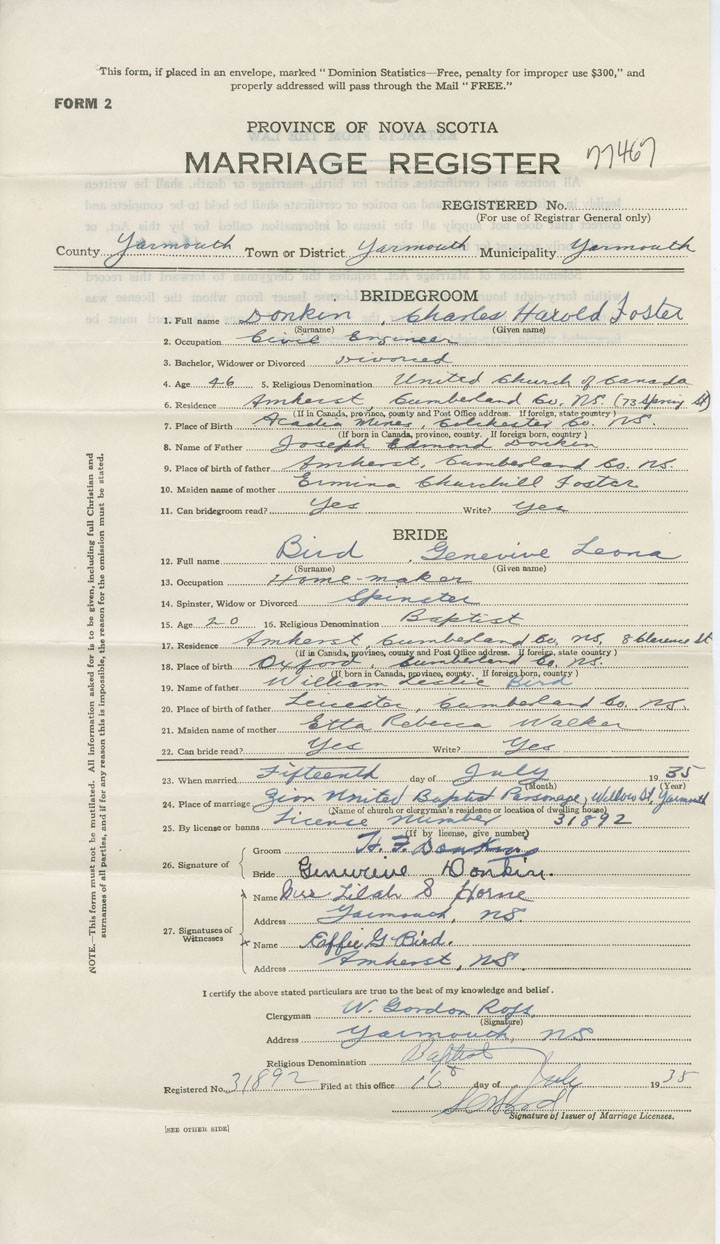 This form, if placed in an envelope, marked "Dominion Statistics—Free, penalty for improper use $300," and
properly addressed will pass through the Mail "FREE."
FORM 2
PROVINCE OF NOVA SCOTIA
MARRIAGE REGISTER 77467
REGISTERED No.
(For use of Registrar General only)
County Yarmouth Town or District Yarmouth Municipality Yarmouth
BRIDEGROOM
1. Full name Donkin, Charles Harold Foster
(Surname) (Given name)
2. Occupation Civil Engineer
3. Bachelor, Widower or Divorced Divorced
4. Age 46 5. Religious Denomination United Church of Canada
6. Residence Amherst, Cumberland Co. NS. (73 Spring St)
(If in Canada, province, county and Post Office address. If foreign, state country)
7. Place of Birth Acadia Mines, Colchester Co. NS.
(If born in Canada, province, county. If foreign born, country)
8. Name of Father Joseph Edmond Donkin
9. Place of birth of father Amherst, Cumberland Co. NS.
10. Maiden name of mother Ermina Churchill Foster
11. Can bridegroom read? Yes Write? Yes
BRIDE
12. Full name Bird, Genevive Leona
(Surname) (Given name)
13. Occupation Home-maker
14. Spinster, Widow or Divorced Spinster
15. Age 20 16. Religious Denomination Baptist
17. Residence Amherst, Cumberland Co, NS, 8 Clarence St
(If in Canada, province, county and Post Office address. If foreign, state country)
18. Place of birth Oxford, Cumberland Co. NS.
(If born in Canada, province, county. If foreign born, country)
19. Name of father William Leslie Bird
20. Place of birth of father Leicester, Cumberland Co. NS.
21. Maiden name of mother Etta Rebecca Walker
22. Can bride read? Yes Write? Yes
23. When married Fifteenth day of July 1935
(Month) (Year)
24. Place of marriage Zion United Baptist Parsonage, Willow St. Yarmouth
(Name of church or clergyman's residence or location of dwelling house)
25. By license or banns License Number 31892
(If by license, give number)
26. Signature of
Groom H. F. Donkin
Bride Genevieve Donkin.
27. Signatures of Witnesses
Name Mrs Lilah S Horne
Address Yarmouth, NS.
Name Effie G Bird.
Address Amherst, NS.
I certify the above stated particulars are true to the best of my knowledge and belief.
Clergyman W. Gordon Ross
(Signature)
Address Yarmouth, NS
Religious Denomination Baptist
Registered No. 31892 Filed at this office 16 day of July 1935
Signature of Issuer of Marriage Licenses.
[SEE OTHER SIDE]
NOTE.—This form must not be mutilated. All information asked for is to be given, including full Christian and
surnames of all parties, and if for any reason this is impossible, the reason for the omission must be stated.